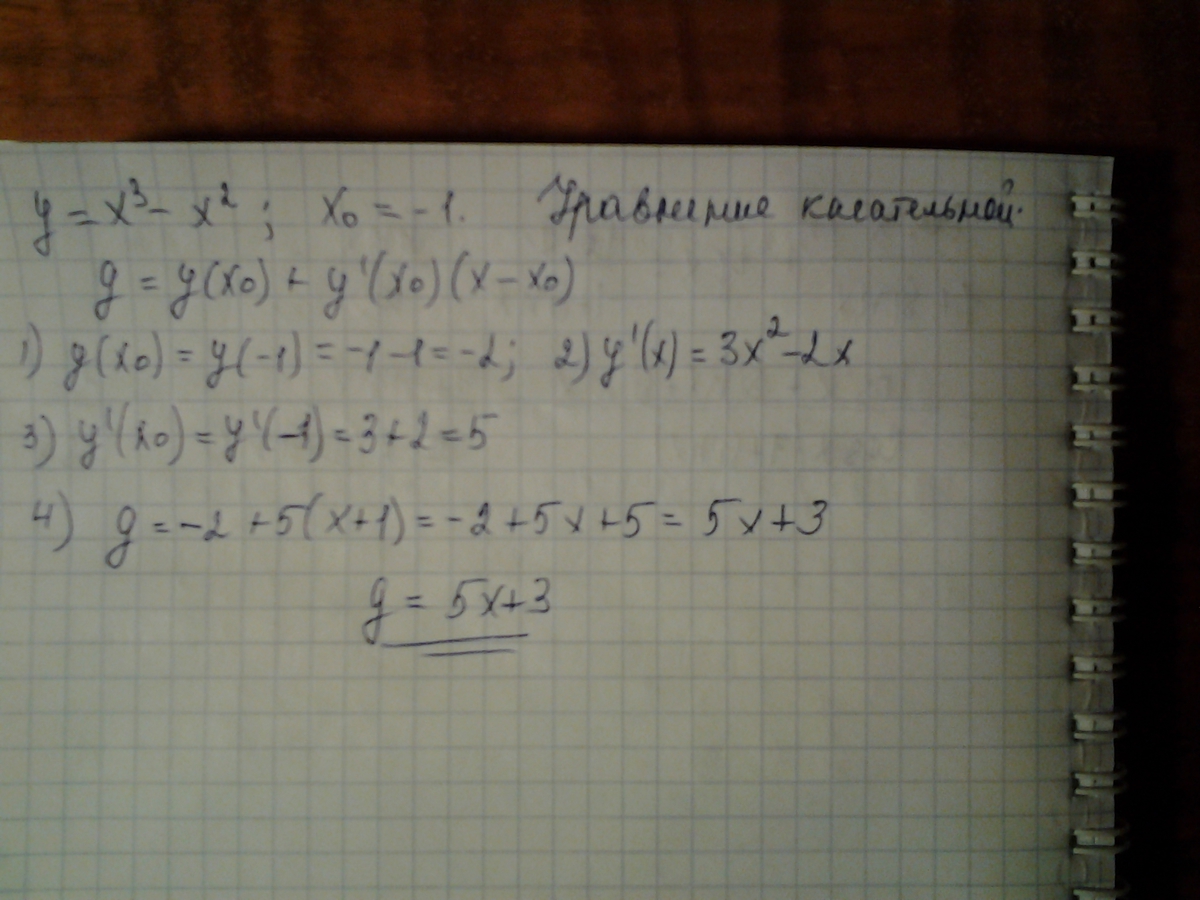 y = x³ - x²; x₀ = -1. Уравнение касательной.
y = y(x₀) + y'(x₀)(x - x₀)
1) y(x₀) = y(-1) = -1 - 1 = -2; 2) y'(x) = 3x² - 2x
3) y'(x₀) = y'(-1) = 3 + 2 = 5
4) y = -2 + 5(x+1) = -2 + 5x + 5 = 5x + 3
y = 5x + 3